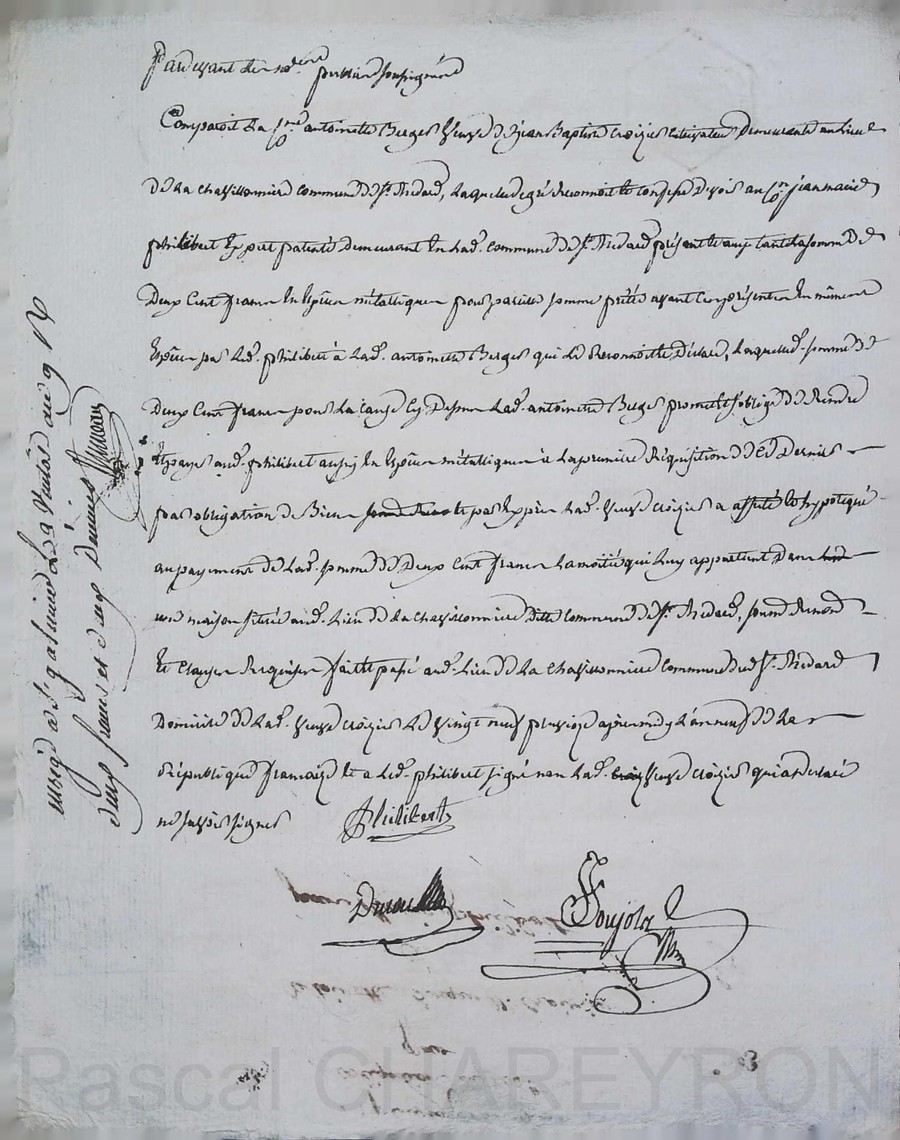 Pardevant les notres publics soussignés
Comparoit la Cne antoinette Berger Veuve de jean Baptiste croizier cultivateur Demeurante au lieu
de La Chavissonnierd commune de St. Medard, Laquelle de gré Reconnoit et confesse Devoir au Cn. jean marie
philibert Expert patenté demeurant En Lad. commune de St. Medard présent et acceptant la somme de
Deux Cent francs En Espèces métalliques pour pareille somme prêtée avant Ces présentes En mêmes
Espèces par Led. philibert à Lad. antoinette Berger qui Le Reconnoit et Déclare, Laquelle d. somme de
Deux Cent francs pour la Cause Cy Dessus Lad. antoinette Berger promet et s'oblige de Rendre
Et payer aud. philibert aussy En Espèces métalliques à La première Réquisition de Ce Dernier
par obligation de Biens et par Exprès Lad. Veuve croizier a affecté et hypotéqué
au payement de Lad. somme de Deux Cent francs La moitié qui Luy appartient Dans
une maison située aud. Lieu de La Chavissonnierd Ditte Commune de St. Medard,
Et Clauses Requises fait et passé aud. Lieu de La Chavissonnierd Commune dud. St. Medard
Domicile de Lad. Veuve croizier Le Vingt neuf pluviose L'an neuf de La
République française et a Led. philibert signé non Lad. Veuve croizier qui a declaré
ne savoir signer Philibert
Soujola
enregé à St. galmier Le
deux francs et deux Decimes
Pascal CHAREYRON